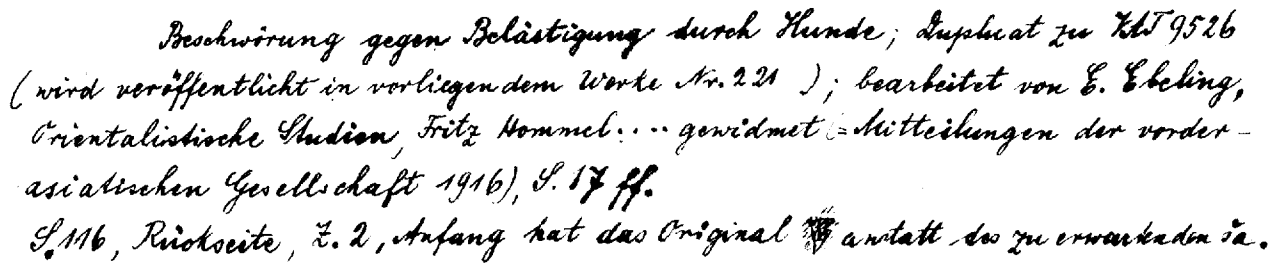 Beschwörung gegen Belästigung durch Hunde; Duplikat zu VAT 9526
(wird veröffentlicht in vorliegendem Werke Nr. 221 ); bearbeitet von E. Ebeling,
Orientalistische Studien, Fritz Hommel .... gewidmet (= Mitteilungen der vorder-
asiatischen Gesellschaft 1916), S. 17 ff.
S. 116, Rückseite, Z. 2, Anfang hat das Original anstatt des zu erwartenden ša.